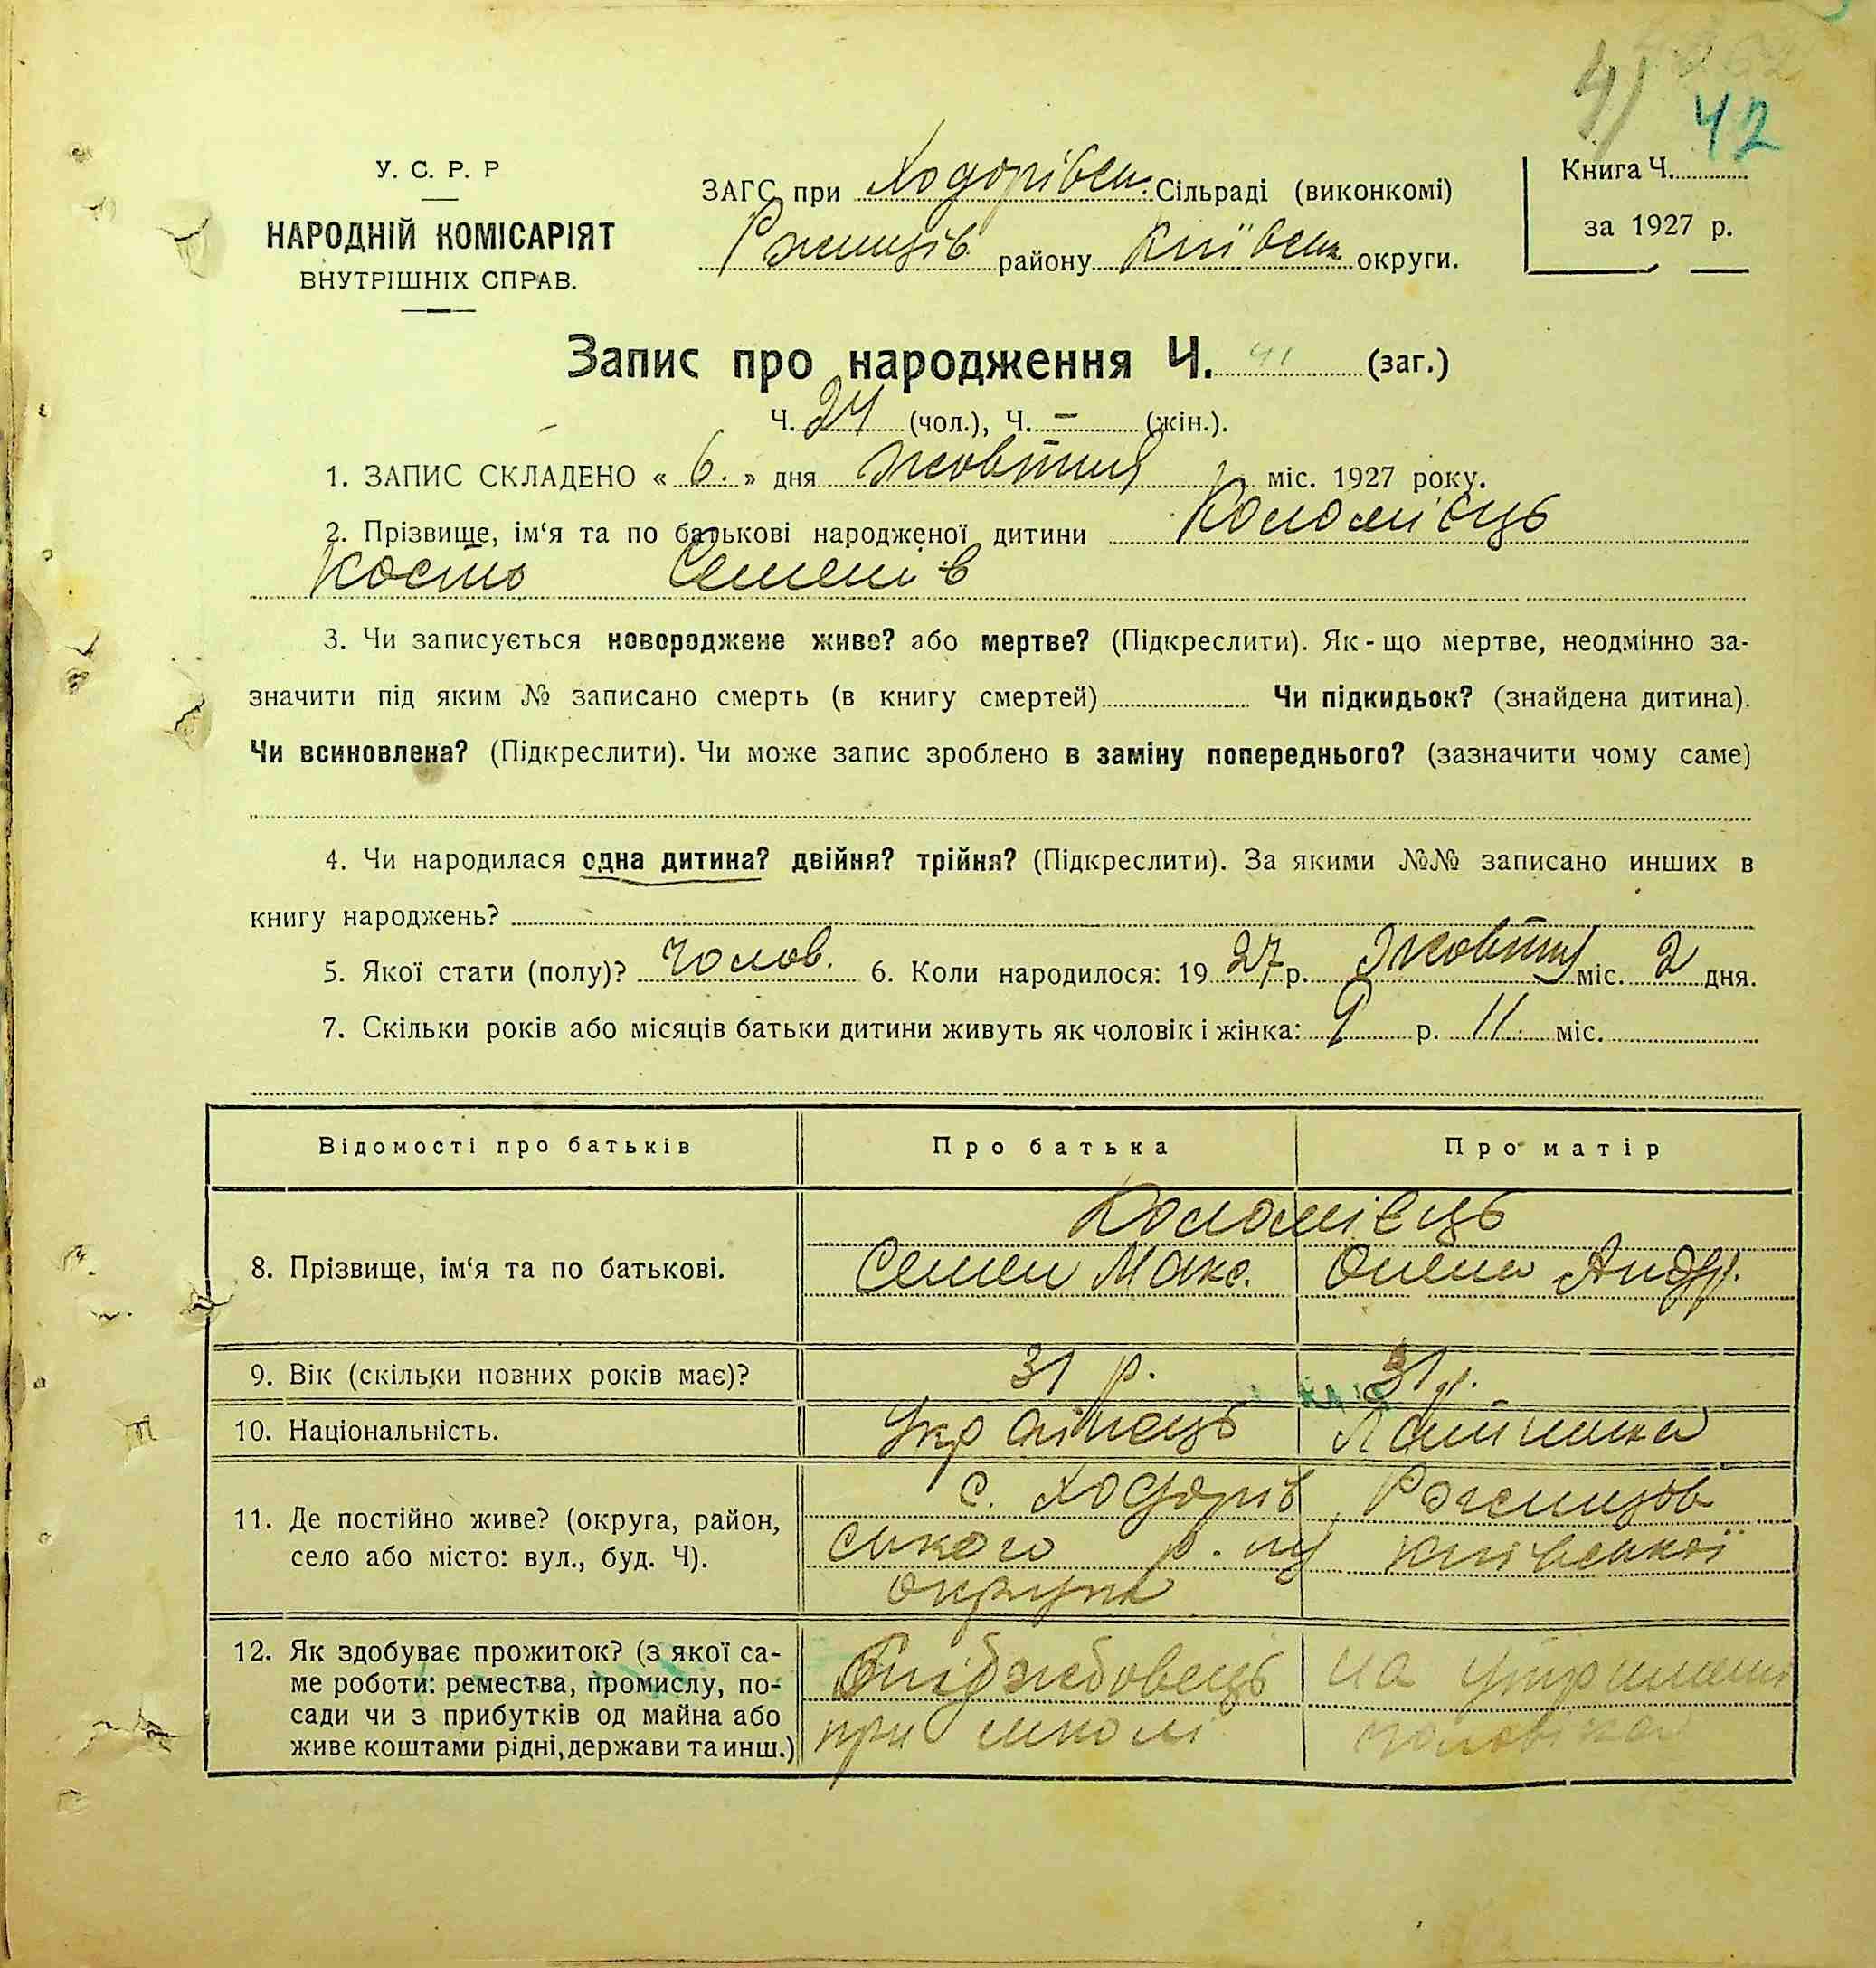 41 42
У. С. Р. Р
НАРОДНІЙ КОМІСАРІЯТ
ВНУТРІШНІХ СПРАВ.
ЗАГС при Ходорівськ. Сільраді (виконкомі)
Ржищів. району Київськ округи.
Книга Ч.
за 1927 р.
Запис про народження Ч. 41 (заг.)
Ч. 24 (чол.), Ч. – (жін.).
1. ЗАПИС СКЛАДЕНО « 6. » дня Жовтня міс. 1927 року.
2. Прізвище, ім‘я та по батькові народженої дитини Коломієць
Кость Семенів
3. Чи записується новороджене живе? або мертве? (Підкреслити). Як - що мертве, неодмінно за-
значити під яким № записано смерть (в книгу смертей) Чи підкидьок? (знайдена дитина).
Чи всиновлена? (Підкреслити). Чи може запис зроблено в заміну попереднього? (зазначити чому саме)
4. Чи народилася одна дитина? двійня? трійня? (Підкреслити). За якими №№ записано инших в
книгу народжень?
5. Якої стати (полу)? Чолов. 6. Коли народилося: 19 27 р. Жовтня міс. 2 дня.
7. Скільки років або місяців батьки дитини живуть як чоловік і жінка: 9 р. 11. міс.
Відомості про батьків Про батька Про матір
8. Прізвище, ім‘я та по батькові.
Коломієць
Семен Макс. Олена Андр.
9. Вік (скільки повних років має)? 31 р. 31 р.
10. Національність. Українець
11. Де постійно живе? (округа, район,
село або місто: вул., буд. Ч).
с. Ходорів Ржищів
ського р-ну Київської
округи
12. Як здобуває прожиток? (з якої са-
ме роботи: ремества, промислу, по-
сади чи з прибутків од майна або
живе коштами рідні, держави та инш.)
на утриманні
при школі чоловіка